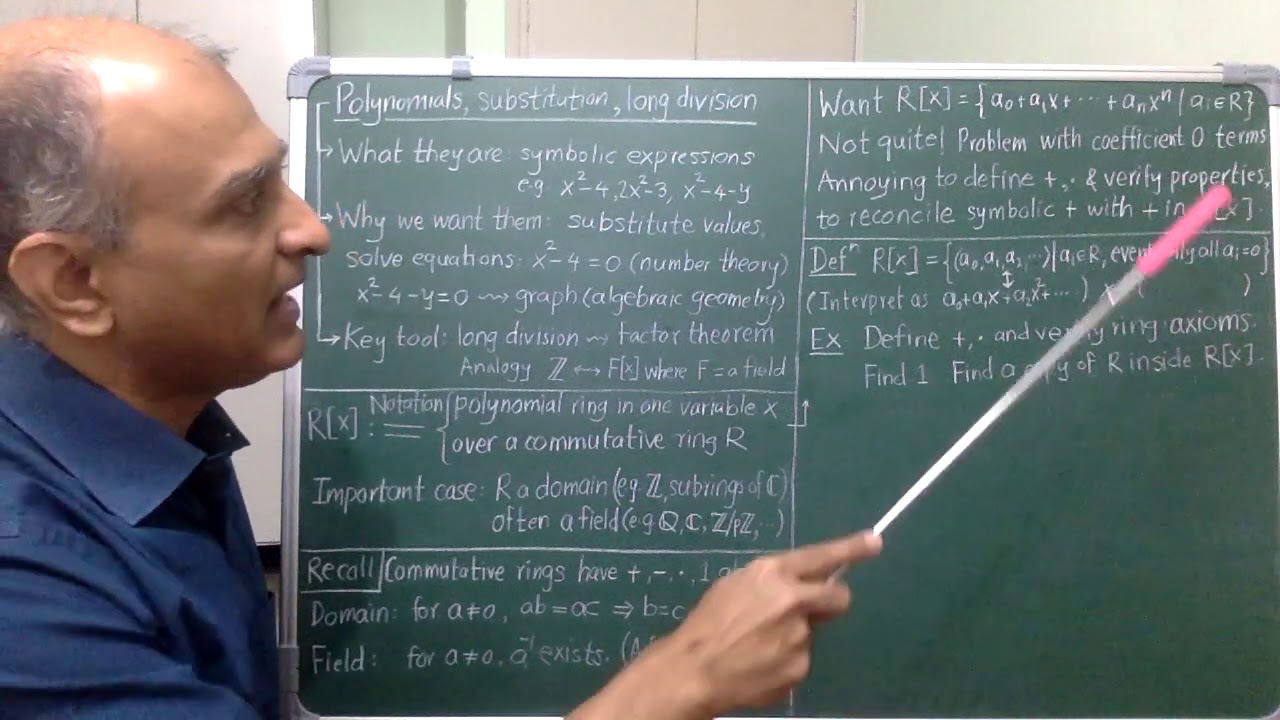 Polynomials, substitution, long division
What they are: symbolic expressions
e.g. x²-4, 2x²-3, x²-4-y
Why we want them: substitute values,
solve equations: x²-4=0 (number theory)
x²-4-y=0 ⇝ graph (algebraic geometry)
Key tool: long division ⇝ factor theorem
Analogy ℤ ↔ F[x] where F = a field
R[x] : Notation = { polynomial ring in one variable x
over a commutative ring R
Important case: R a domain (eg ℤ, subrings of ℂ)
often a field (e.g ℚ, ℂ, ℤ/pℤ, ...)
Recall Commutative rings have +, -, ·, 1
Domain: for a≠0, ab=ac ⇒ b=c
Field: for a≠0, a⁻¹ exists.
Want R[x] = {a₀+a₁x+ ··· +aₙxⁿ | aᵢ∈R}
Not quite! Problem with coefficient 0 terms
Annoying to define +, · & verify properties,
to reconcile symbolic + with + in [x].
Defⁿ R[x] = {(a₀, a₁, a₂, ...) | aᵢ∈R, eventually all aᵢ=0}
(Interpret as a₀+a₁x+a₂x²+ ··· )
Ex Define +, · and verify ring axioms.
Find 1 Find a copy of R inside R[x].